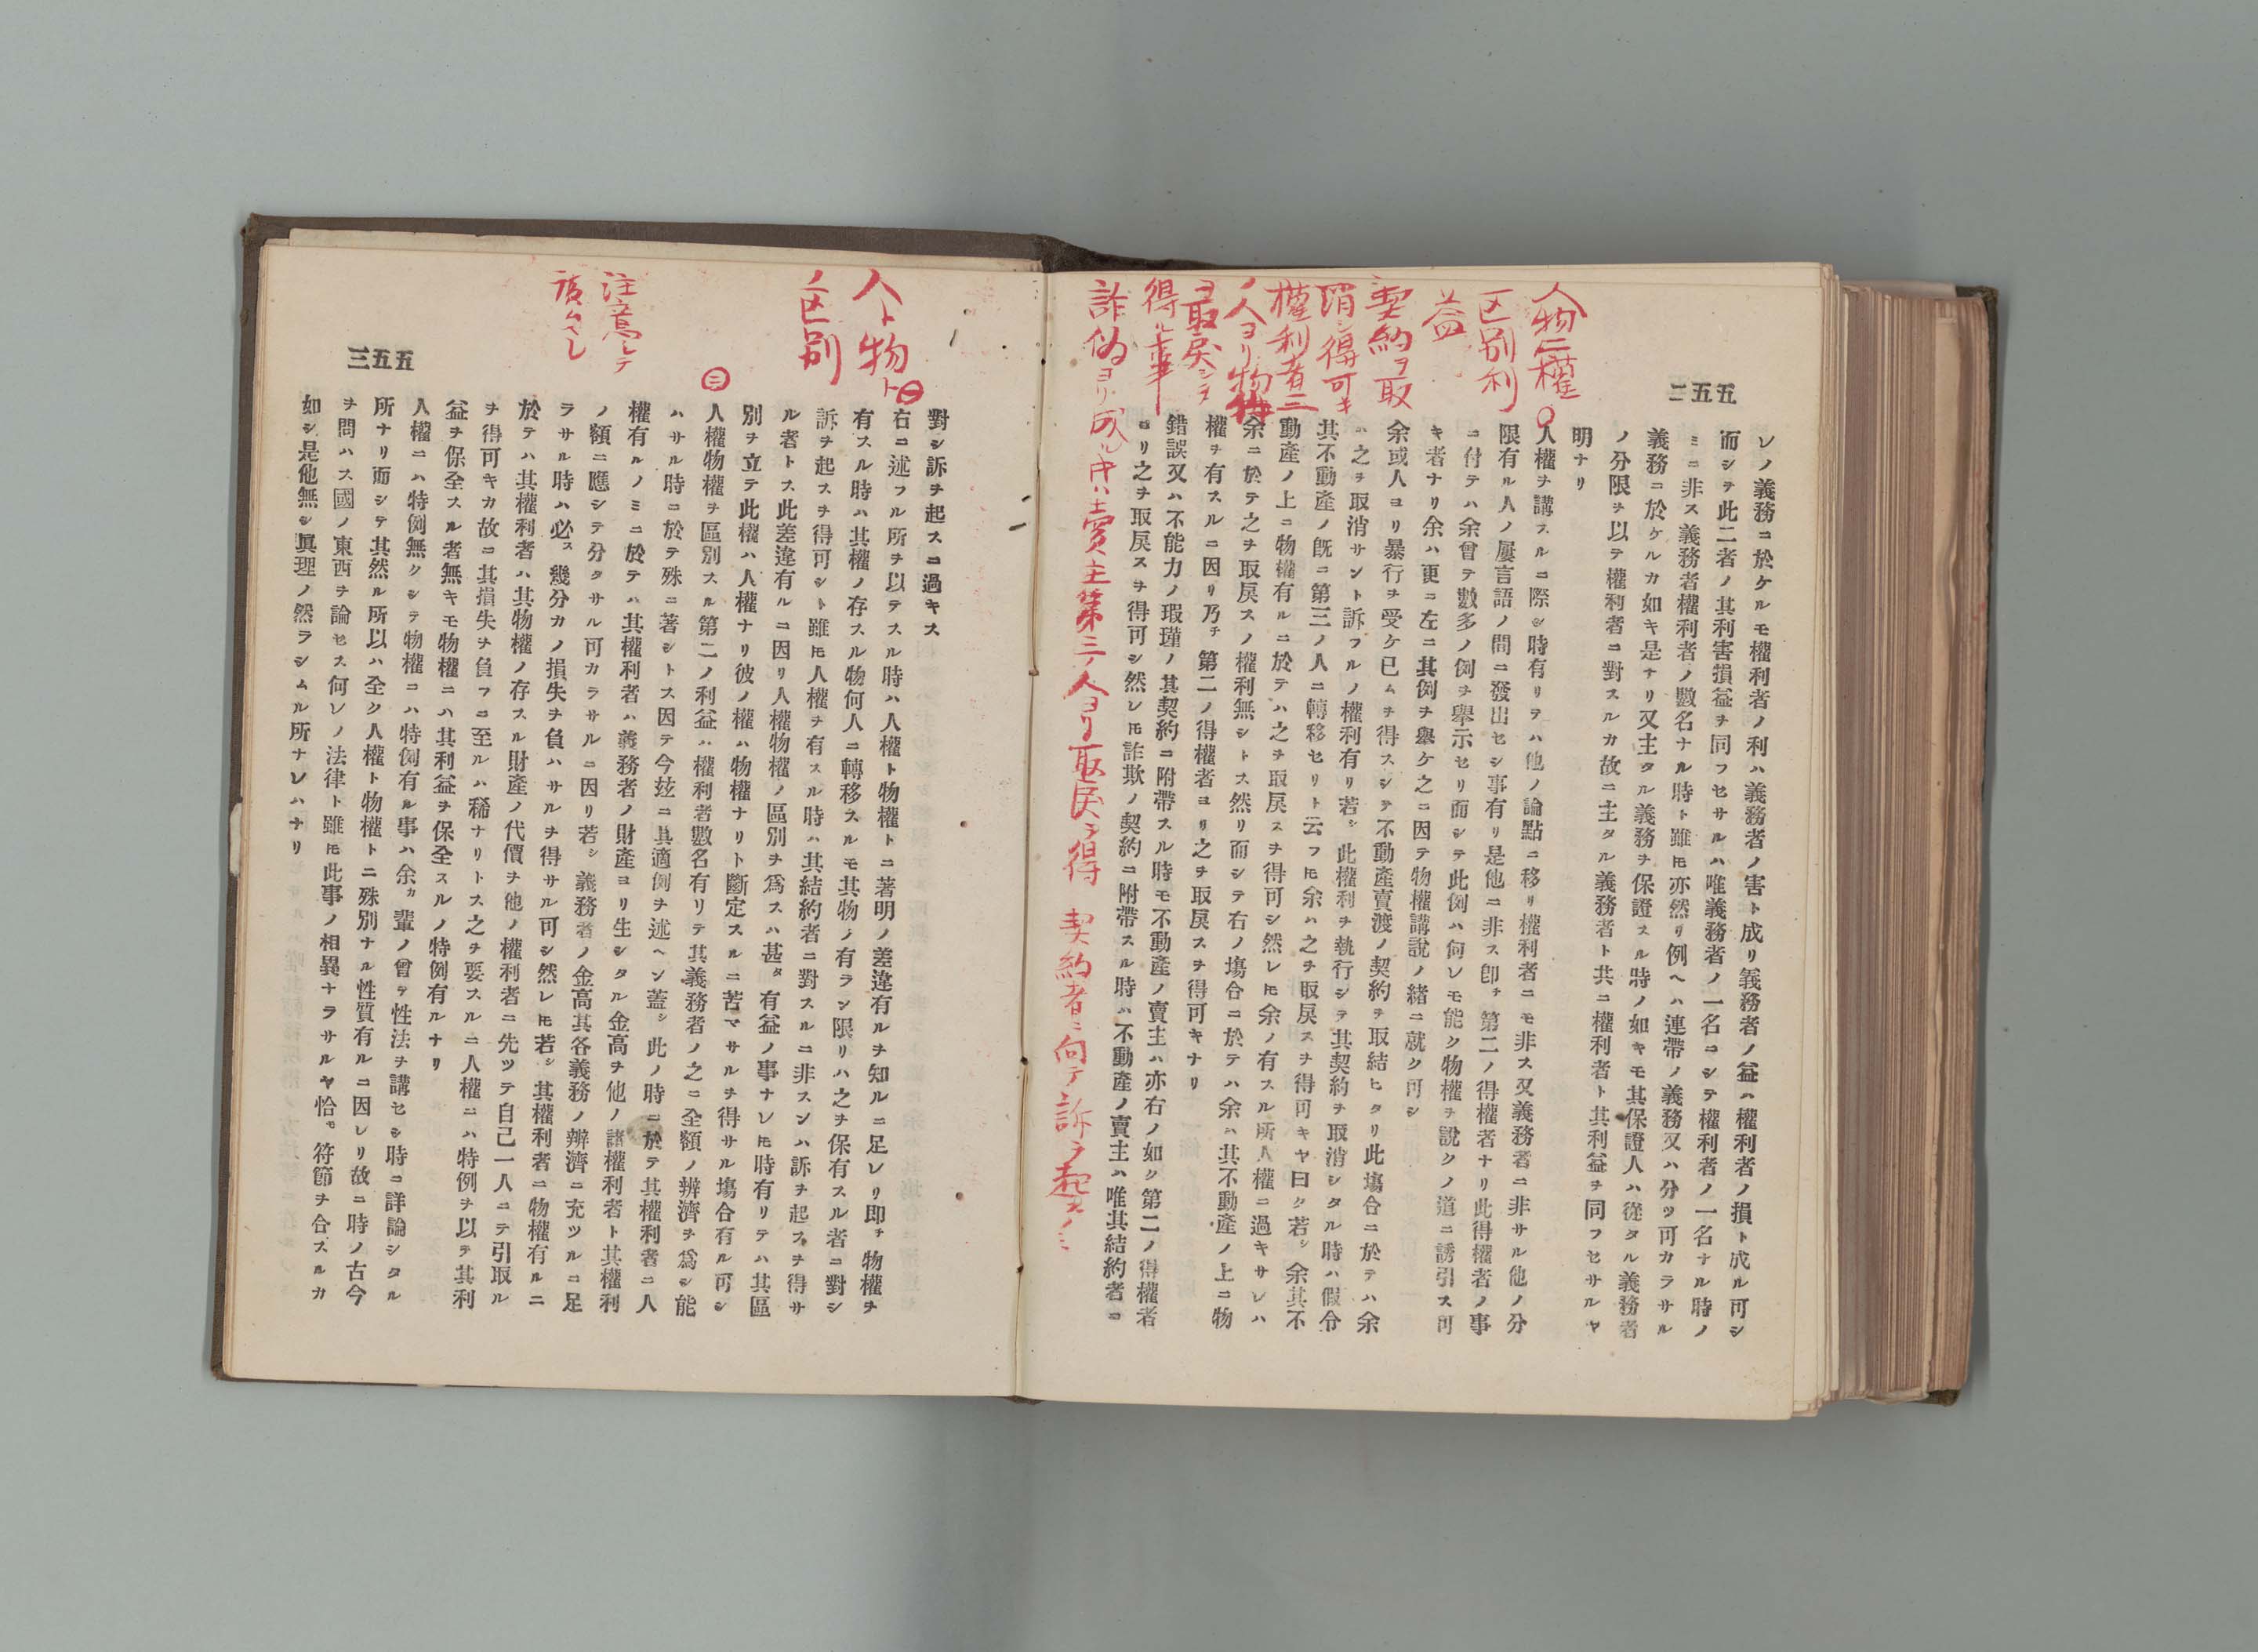 二五五
レノ義務ニ於ケルモ權利者ノ利ハ義務者ノ害ト成リ義務者ノ益ハ權利者ノ損ト成ル可シ
而シテ此二者ノ其利害損益ヲ同フセサルハ唯義務者ノ一名ニシテ權利者ノ一名ナル時ノ
ミニ非ス義務者權利者ノ數名ナル時ト雖𪜈亦然リ例ヘハ連帶ノ義務又ハ分ツ可カラサル
義務ニ於ケルカ如キ是ナリ又主タル義務ヲ保證スル時ノ如キモ其保證人ハ從タル義務者
ノ分限ヲ以テ權利者ニ對スルカ故ニ主タル義務者ト共ニ權利者ト其利益ヲ同フセサルヤ
明ナリ
人物二權
区别利
益
人權ヲ講スルニ際シ時有リテハ他ノ論點ニ移リ權利者ニモ非ス又義務者ニ非サル他ノ分
限有ル人ノ屢言語ノ間ニ發出セシ事有リ是他ニ非ス卽チ第二ノ得權者ナリ此得權者ノ事
ニ付テハ余曾テ數多ノ例ヲ擧示セリ而シテ此例ハ何レモ能ク物權ヲ說クノ道ニ誘引ス可
キ者ナリ余ハ更ニ左ニ其例ヲ擧ケ之ニ因テ物權講說ノ緒ニ就ク可シ
契約ヲ取
消シ得可キ
權利者ニ
ノ人ヨリ物権
ヲ取戻シテ
得ル事
余或人ヨリ暴行ヲ受ケ已ムヲ得スシテ不動產賣渡ノ契約ヲ取結ヒタリ此塲合ニ於テハ余
ハ之ヲ取消サント訴フルノ權利有リ若シ此權利ヲ執行シテ其契約ヲ取消シタル時ハ假令
其不動產ノ旣ニ第三ノ人ニ轉移セリト云フ𪜈余ハ之ヲ取戾スヲ得可キヤ曰ク若シ余其不
動產ノ上ニ物權有ルニ於テハ之ヲ取戾スヲ得可シ然レ𪜈余ノ有スル所人權ニ過キサレハ
余ニ於テ之ヲ取戾スノ權利無シトス然リ而シテ右ノ塲合ニ於テハ余ハ其不動產ノ上ニ物
權ヲ有スルニ因リ乃チ第二ノ得權者ヨリ之ヲ取戾スヲ得可キナリ
錯誤又ハ不能力ノ瑕瑾ノ其契約ニ附帶スル時モ不動產ノ賣主ハ亦右ノ如ク第二ノ得權者
ヨリ之ヲ取戾スヲ得可シ然レ𪜈詐欺ノ契約ニ附帶スル時ハ不動產ノ賣主ハ唯其結約者ニ
詐偽ヨリ成ル时ハ賣主第三ノ人ヨリ取戻ヲ得 契約者ニ向テ訴ヲ起スノミ
三五五
對シ訴ヲ起スニ過キス
人ト物ト
ノ区别
㊀
右ニ述フル所ヲ以テスル時ハ人權ト物權トニ著明ノ差違有ルヲ知ルニ足レリ卽チ物權ヲ
有スル時ハ其權ノ存スル物何人ニ轉移スルモ其物ノ有ラン限リハ之ヲ保有スル者ニ對シ
訴ヲ起スヲ得可シト雖𪜈人權ヲ有スル時ハ其結約者ニ對スルニ非スンハ訴ヲ起スヲ得サ
ル者トス此差違有ルニ因リ人權物權ノ區別ヲ爲スハ甚タ有益ノ事ナレ𪜈時有リテハ其區
別ヲ立テ此權ハ人權ナリ彼ノ權ハ物權ナリト斷定スルニ苦マサルヲ得サル塲合有ル可シ
㊁
人權物權ヲ區別スル第二ノ利益ハ權利者數名有リテ其義務者ノ之ニ全額ノ辨濟ヲ爲シ能
ハサル時ニ於テ殊ニ著シトス因テ今玆ニ其適例ヲ述ヘン蓋シ此ノ時ニ於テ其權利者ニ人
權有ルノミニ於テハ其權利者ハ義務者ノ財產ヨリ生シタル金高ヲ他ノ諸權利者ト其權利
ノ額ニ應シテ分タサル可カラサルニ因リ若シ義務者ノ金高其各義務ノ辨濟ニ充ツルニ足
ラサル時ハ必ス幾分カノ損失ヲ負ハサルヲ得サル可シ然レ𪜈若シ其權利者ニ物權有ルニ
於テハ其權利者ハ其物權ノ存スル財產ノ代價ヲ他ノ權利者ニ先ツテ自己一人ニテ引取ル
ヲ得可キカ故ニ其損失ヲ負フニ至ルハ稀ナリトス之ヲ要スルニ人權ニハ特例ヲ以テ其利
益ヲ保全スル者無キモ物權ニハ其利益ヲ保全スルノ特例有ルナリ
注意シテ
讀ムヘシ
人權ニハ特例無クシテ物權ニハ特例有ル事ハ余カ輩ノ曾テ性法ヲ講セシ時ニ詳論シタル
所ナリ而シテ其然ル所以ハ全ク人權ト物權トニ殊別ナル性質有ルニ因レリ故ニ時ノ古今
ヲ問ハス國ノ東西ヲ論セス何レノ法律ト雖𪜈此事ノ相異ナラサルヤ恰モ符節ヲ合スルカ
如シ是他無シ眞理ノ然ラシムル所ナレハナリ